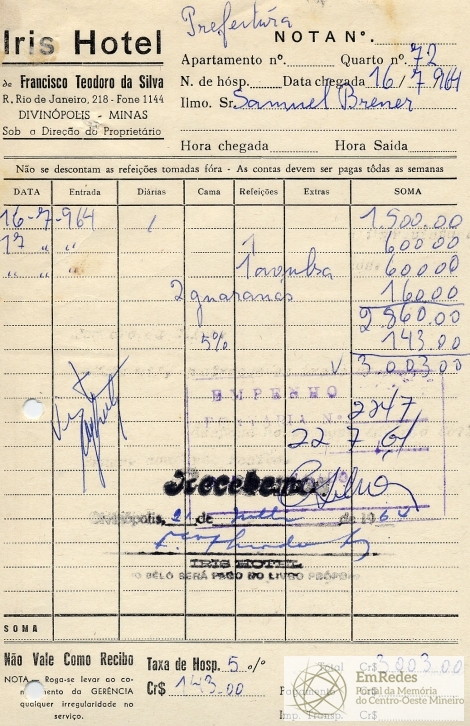 Prefeitura
Iris Hotel
de Francisco Teodoro da Silva
R, Rio de Janeiro, 218 - Fone 1144
DIVINÓPOLIS - MINAS
Sob a Direção do Proprietário
NOTA Nº.
Apartamento nº. Quarto nº. 72
N. de hósp. Data chegada 16/7 964
Ilmo. Sr. Samuel Brener
Hora chegada Hora Saida
Não se descontam as refeições tomadas fóra - As contas devem ser pagas tôdas as semanas
DATA Entrada Diárias Cama Refeições Extras SOMA
16-7-964 1 1.500.00
17 " " 1 600.00
" " " 1 600.00
2 guaranás 160.00
2.860.00
5% 143.00
3.003.00
EMPENHO
2247
22 7 64
Recebemo
Divinópolis, 21 de de 1964
IRIS HOTEL
O SÊLO SERÁ PAGO NO LIVRO PRÓPRIO
SOMA
Não Vale Como Recibo
NOTA - Roga-se levar ao conhecimento da GERÊNCIA qualquer irregularidade no serviço.
Taxa de Hosp. 5 º/º
Cr$ 143.00
Total Cr$ 3003.00
Pagamento
Imp. Transp. Cr$
EmRedes
Portal da Memória
do Centro-Oeste Mineiro